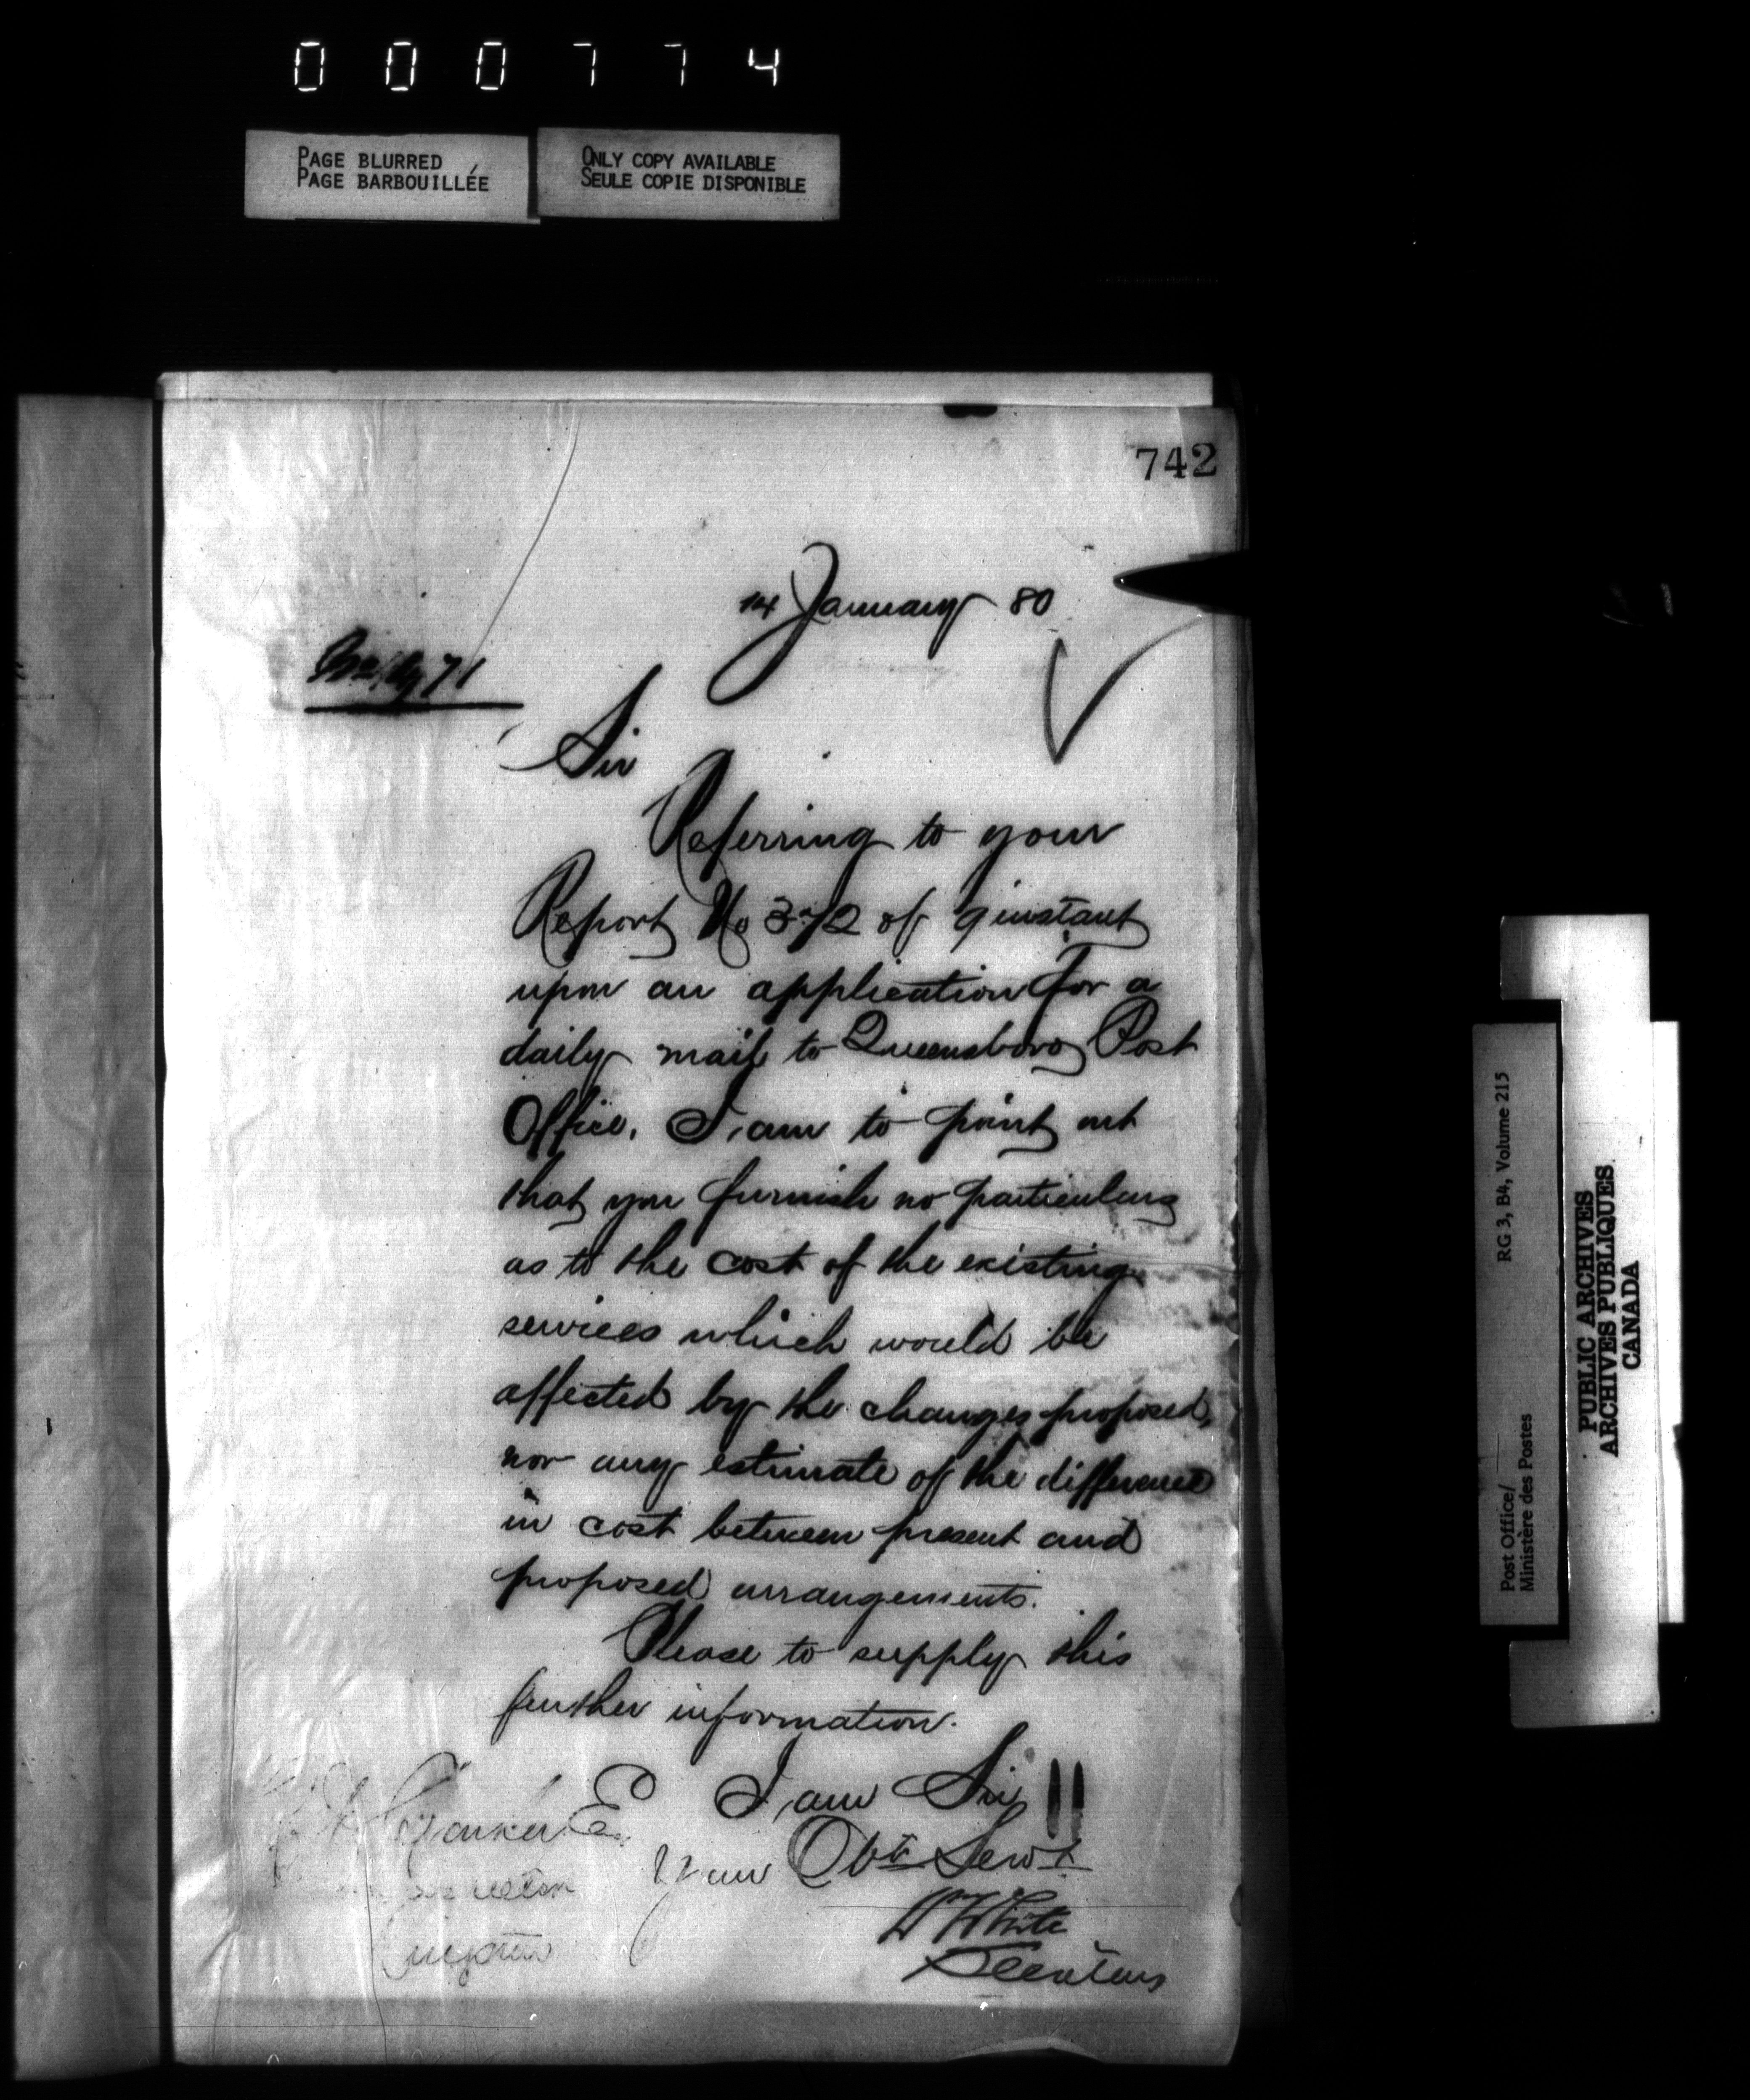 000774
PAGE BLURRED
PAGE BARBOUILLÉE
ONLY COPY AVAILABLE
SEULE COPIE DISPONIBLE
742
14 January 80
71
Sir
Referring to your
Report No 372 of 9 instant
upon an application for a
daily mail to Queensboro Post
Office, I am to point out
that you furnish no particulars
as to the cost of the existing
services which would be
affected by the changes proposed,
nor any estimate of the difference
in cost between present and
proposed arrangements.
Please to supply this
further information.
I am Sir
Your Obt Servt
W White
Secretary
Barker E
Kingston
Post Office/
Ministère des Postes
RG 3, B4, Volume 215
PUBLIC ARCHIVES
ARCHIVES PUBLIQUES
CANADA